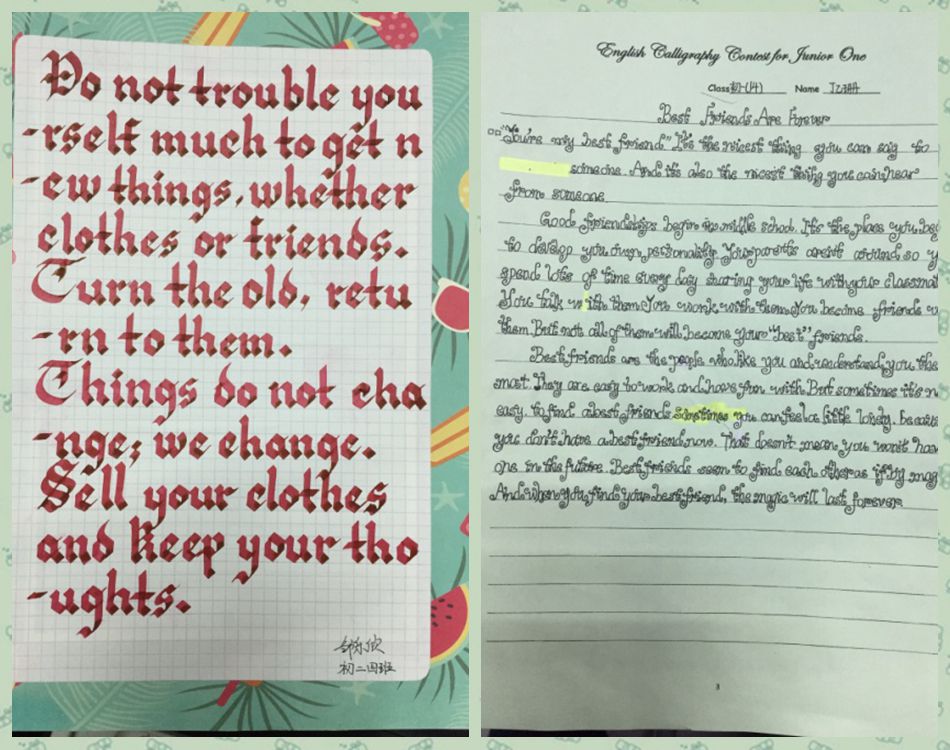 Do not trouble you
-rself much to get n
-ew things, whether
clothes or friends.
Turn the old, retu
-rn to them.
Things do not cha
-nge; we change.
Sell your clothes
and keep your tho
-ughts.
初二四班
English Calligraphy Contest for Junior One
Class 初一(14) Name
Best Friends Are Forever
"You're my best friend" It's the nicest thing you can say to
someone. And it's also the nicest thing you can hear
from someone.
Good friendships begin in middle school. It's the place you beg
to develop you own personality. Your parents aren't around so y
spend lots of time every day sharing your life with your classmat
You talk with them. You work with them. You become friends w
them. But not all of them will become your "best" friends.
Best friends are the people who like you and understand you the
most. They are easy to work and have fun with. But sometimes it's n
easy to find a best friend. Sometimes you can feel a little lonely. Becaus
you don't have a best friend now. That doesn't mean you won't hav
one in the future. Best friends seem to find each other as if by mag
And when you find your best friend, the magic will last forever.
3